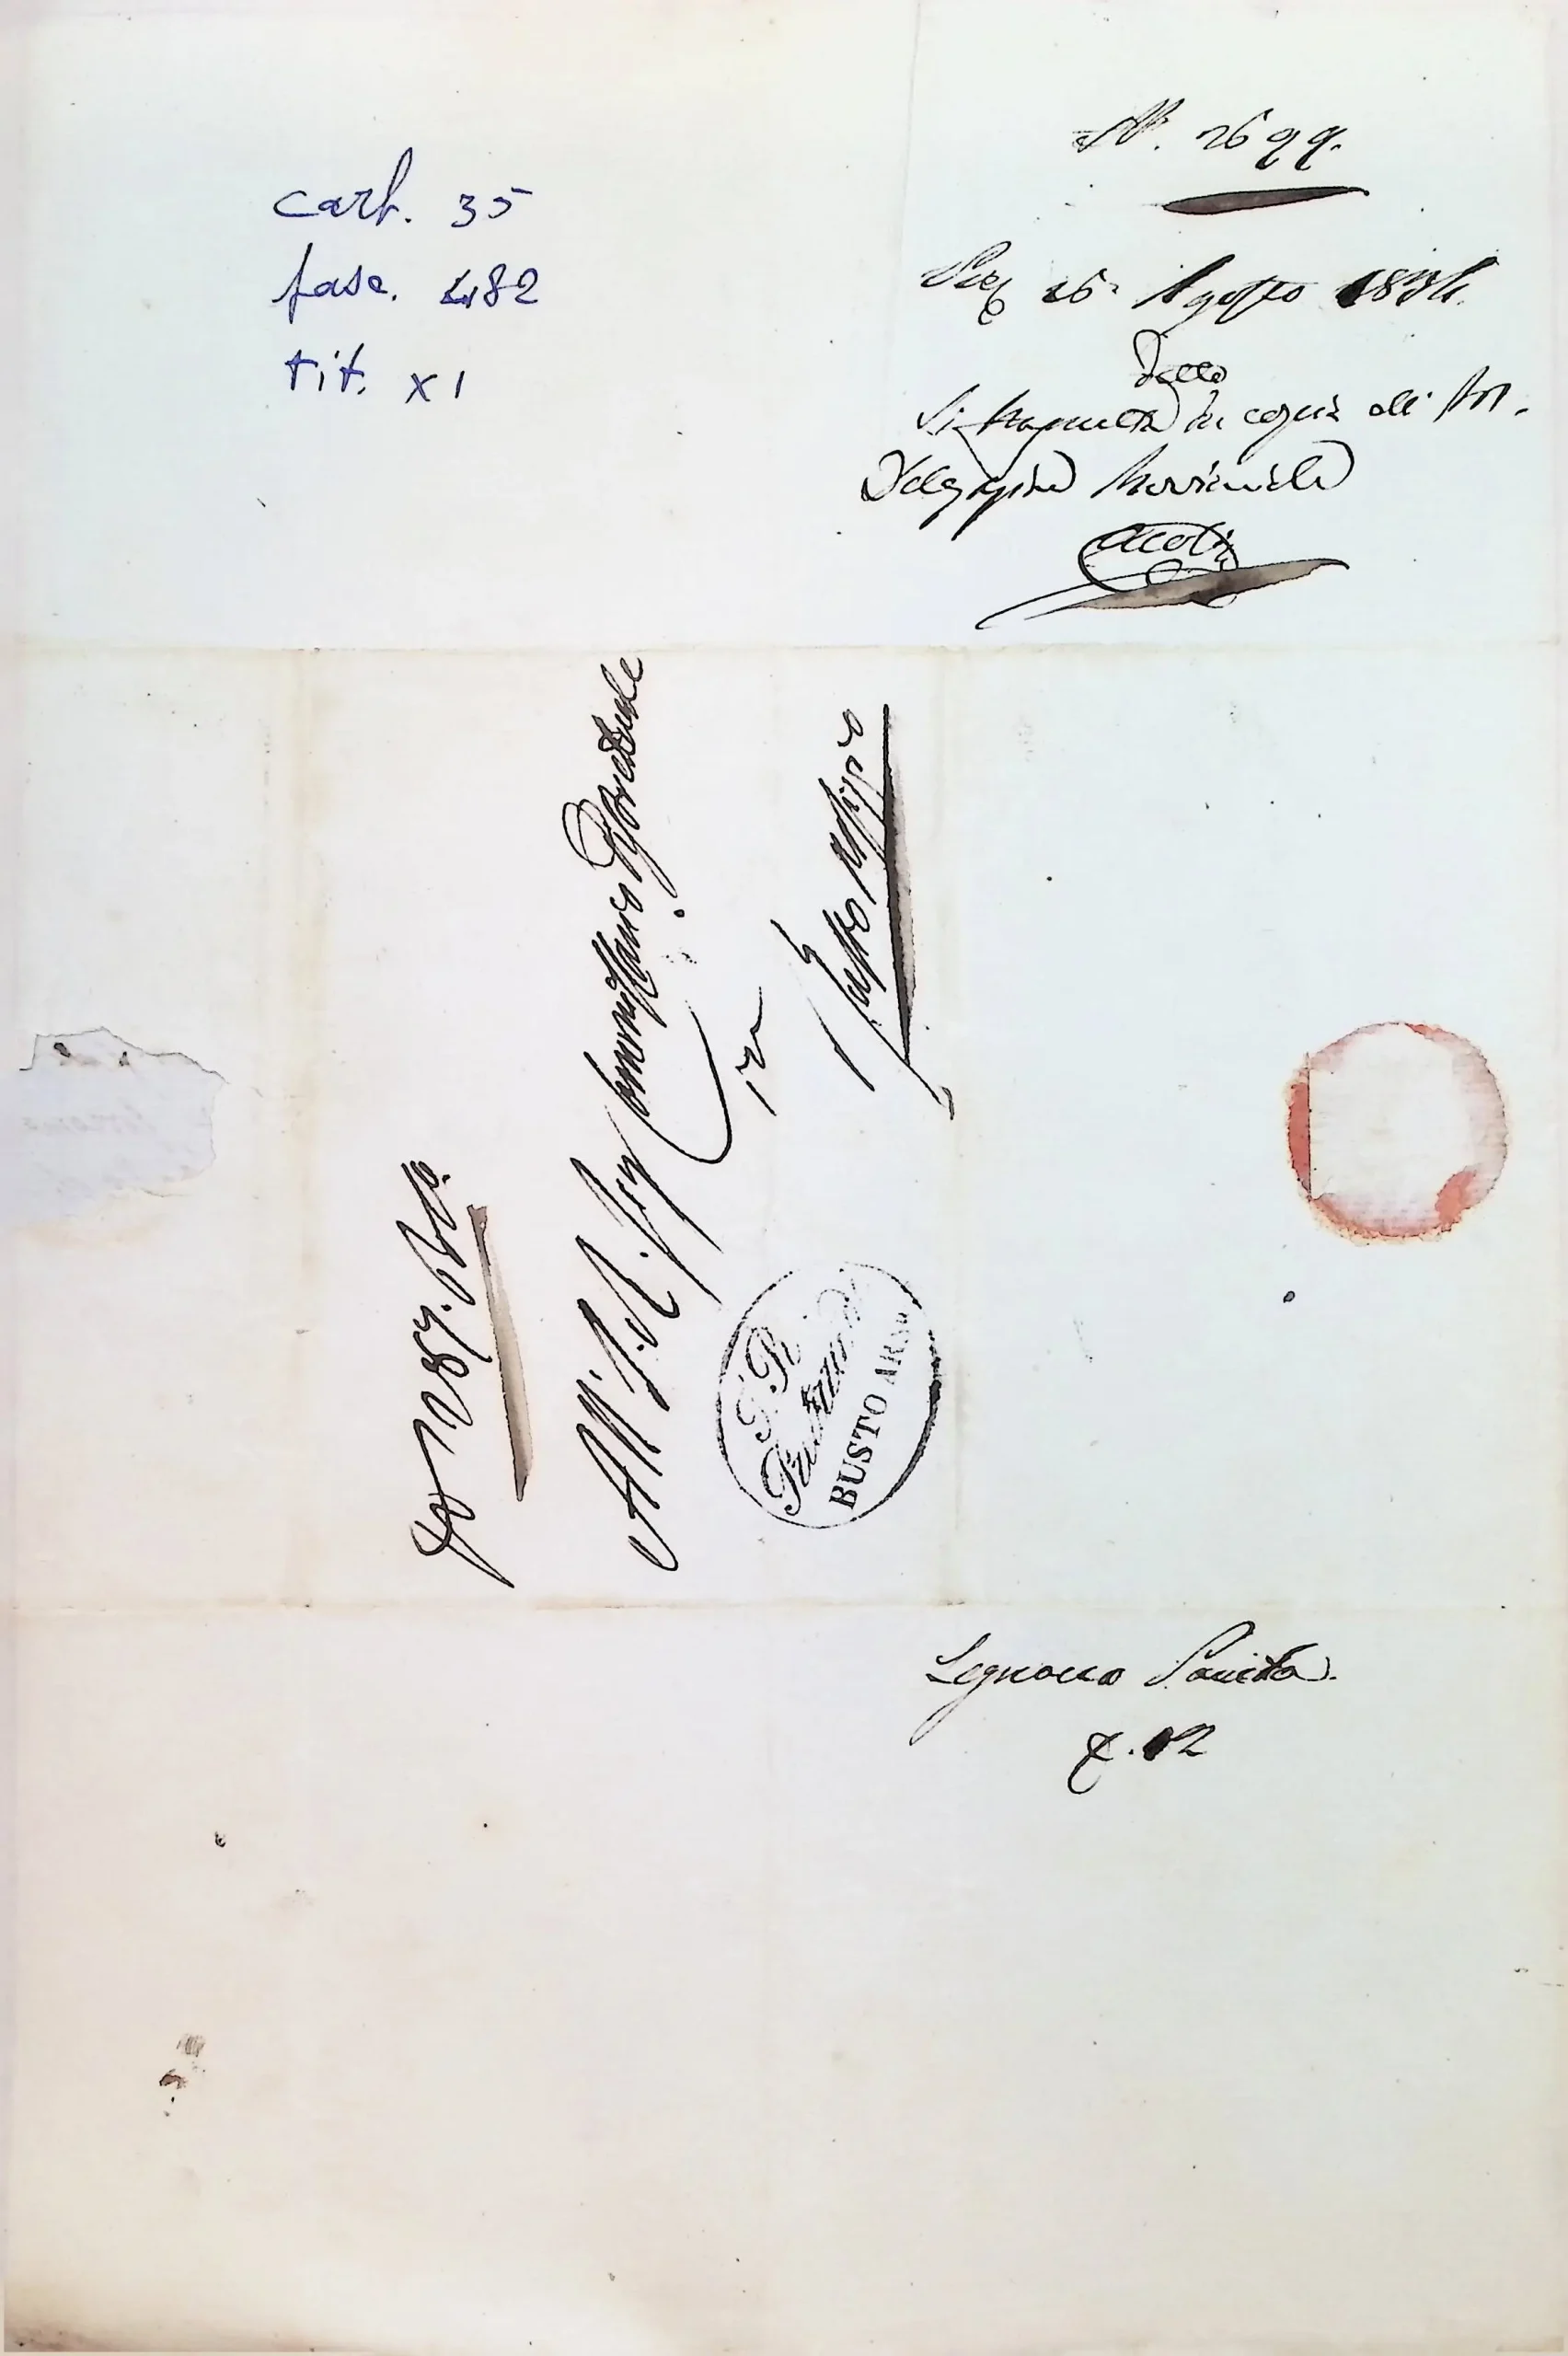 cart. 35
fasc. 482
tit. XI
N. 2699.
Prez 26 Agosto 1834.
Detto
Si trasmetta in copia all'
Delegazione Provinciale
N 1287. Poli.
All'I. R. Commissario Distrettuale
in
Busto Arsizio
I. R.
Pretura di
BUSTO ARSO
Legnano Sanità.
F. 12